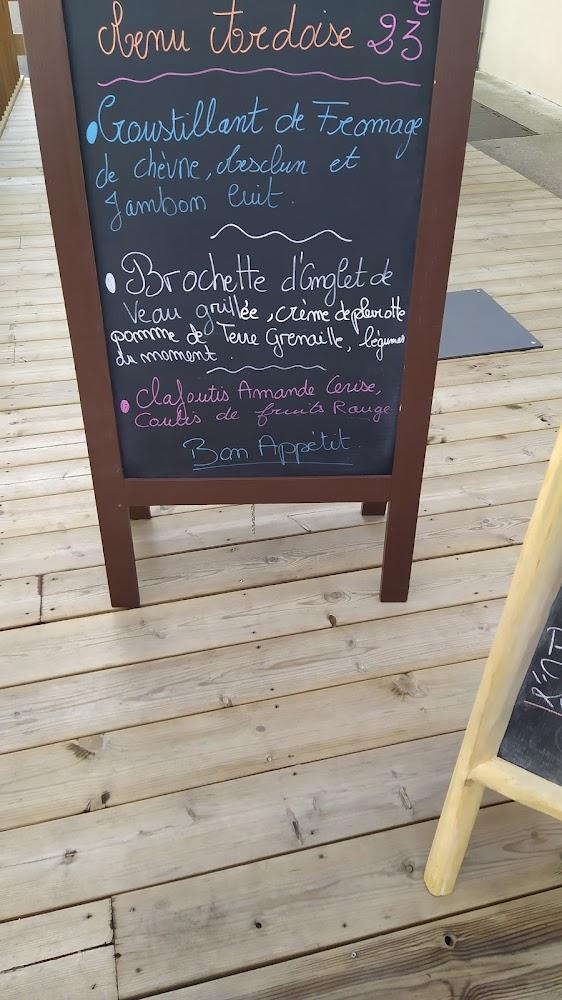 Menu Ardoise 23 €
• Croustillant de Fromage
de chèvre, Mesclun et
Jambon Cuit.
• Brochette d'Onglet de
Veau grillée, crème de pleurotte
pomme de Terre Grenaille, légumes
du moment.
• Clafoutis Amande Cerise,
Coulis de fruits Rouge
Bon Appétit